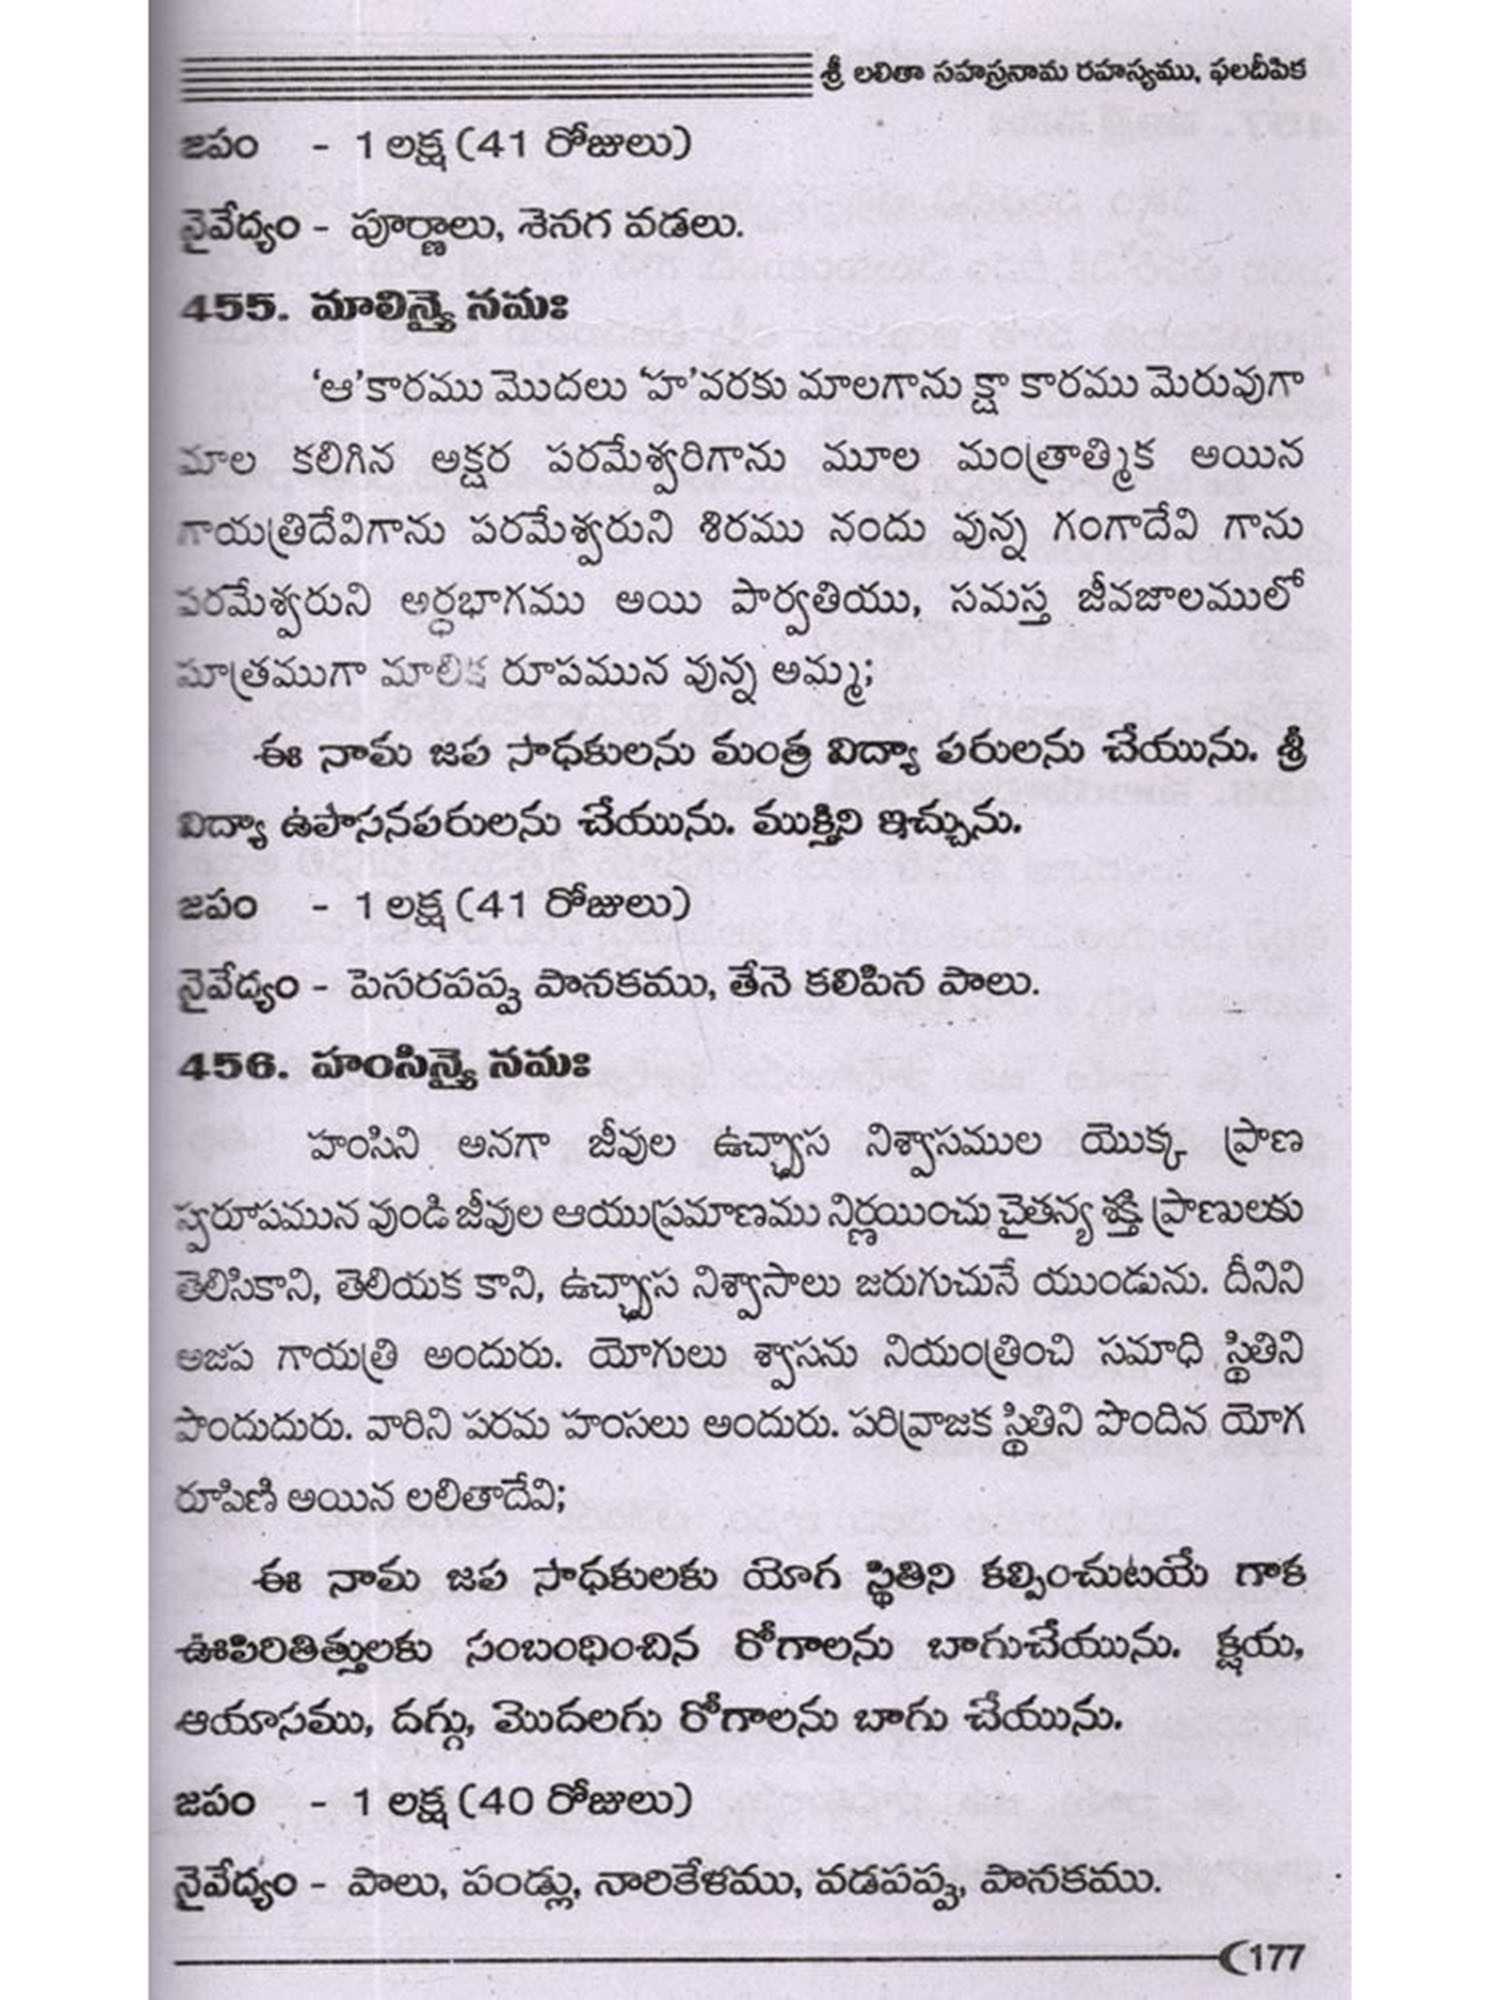 శ్రీ లలితా సహస్రనామ రహస్యము, ఫలదీపిక
జపం - 1 లక్ష (41 రోజులు)
నైవేద్యం - పూర్ణాలు, శెనగ వడలు.
455. మాలిన్యై నమః
'ఆ'కారము మొదలు 'హ'వరకు మాలగాను క్షా కారము మెరువుగా
మాల కలిగిన అక్షర పరమేశ్వరిగాను మూల మంత్రాత్మిక అయిన
గాయత్రిదేవిగాను పరమేశ్వరుని శిరము నందు వున్న గంగాదేవి గాను
పరమేశ్వరుని అర్ధభాగము అయి పార్వతియు, సమస్త జీవజాలములో
సూత్రముగా మాలిక రూపమున వున్న అమ్మ;
ఈ నామ జప సాధకులను మంత్ర విద్యా పరులను చేయును. శ్రీ
విద్యా ఉపాసనపరులను చేయును. ముక్తిని ఇచ్చును.
జపం - 1 లక్ష (41 రోజులు)
నైవేద్యం - పెసరపప్పు పానకము, తేనె కలిపిన పాలు.
456. హంసిన్యై నమః
హంసిని అనగా జీవుల ఉచ్ఛ్వాస నిశ్వాసముల యొక్క ప్రాణ
స్వరూపమున వుండి జీవుల ఆయుప్రమాణము నిర్ణయించు చైతన్య శక్తి ప్రాణులకు
తెలిసికాని, తెలియక కాని, ఉచ్ఛ్వాస నిశ్వాసాలు జరుగుచునే యుండును. దీనిని
అజప గాయత్రి అందురు. యోగులు శ్వాసను నియంత్రించి సమాధి స్థితిని
పొందుదురు. వారిని పరమ హంసలు అందురు. పరివ్రాజక స్థితిని పొందిన యోగ
రూపిణి అయిన లలితాదేవి;
ఈ నామ జప సాధకులకు యోగ స్థితిని కల్పించుటయే గాక
ఊపిరితిత్తులకు సంబంధించిన రోగాలను బాగుచేయును. క్షయ,
ఆయాసము, దగ్గు, మొదలగు రోగాలను బాగు చేయును.
జపం - 1 లక్ష (40 రోజులు)
నైవేద్యం - పాలు, పండ్లు, నారికేళము, వడపప్పు, పానకము.
177